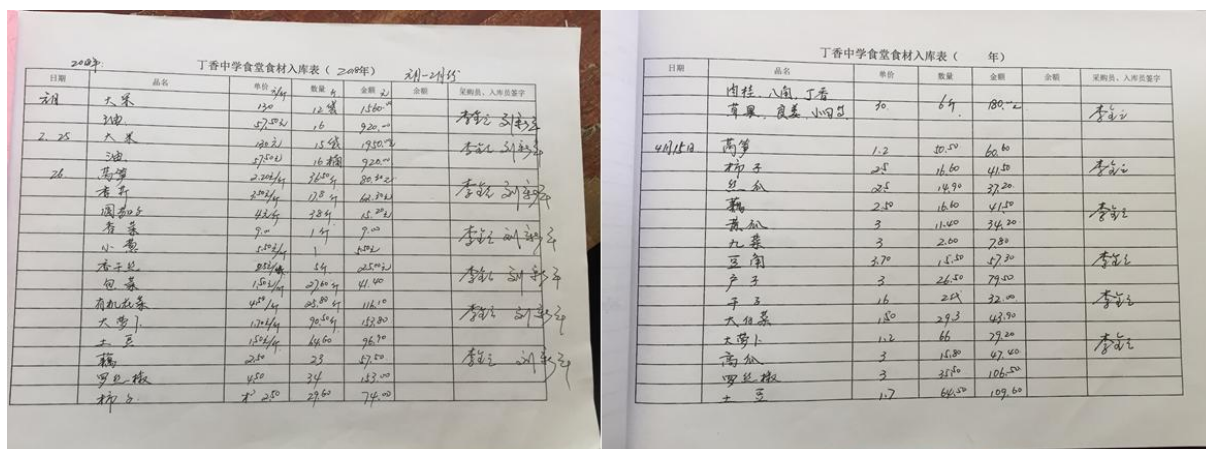 2018年.
丁香中学食堂食材入库表（ 2018年） 元月-2月份
日期 品名 单价 元/斤 数量 斤 金额 元 金额 采购员、入库员签字
元月 大米 130 12袋 1560.00
油 57.50元 16 920.00 李金元 刘新军
2.25 大米 130元 15袋 1950.00 李金元 刘新军
油 57.50元 16桶 920.00
26 莴笋 2.20元/斤 36.50斤 80.30元
香芹 3.50元/斤 17.8斤 62.30元 李金元 刘新军
圆茄子 4元/斤 3.8斤 15.20元
香菜 9.00 1斤 9.00
小葱 5.50元/斤 1 5.50元 李金元 刘新军
香干丝 5斤 25.00元
包菜 1.50元/斤 27.60斤 41.40 李金元 刘新军
有机花菜 4.50/斤 25.80斤 116.10
大萝卜 1.70元/斤 90.50斤 153.80 李金元 刘新军
土豆 1.50元/斤 64.60 96.90
藕 2.50 23 57.50 李金元 刘新军
罗丝椒 4.50 34 153.00
柿子 2.50 29.60 74.00
丁香中学食堂食材入库表（ 年）
日期 品名 单价 数量 金额 金额 采购员、入库员签字
肉桂、八角、丁香
草果、良姜、小回香 30 6斤 180.00元 李金元
4月15日 莴笋 1.2 50.50 60.60
柿子 2.5 16.60 41.50 李金元
丝瓜 2.5 14.90 37.20
藕 2.50 16.60 41.50
黄瓜 3 11.40 34.20 李金元
九菜 3 2.60 7.80
豆角 3.70 15.50 57.30 李金元
卢子 3 26.50 79.50
干子 16 2斤 32.00 李金元
大白菜 1.50 29.3 43.90
大萝卜 1.2 66 79.20 李金元
高瓜 3 15.80 47.40
罗丝椒 3 35.50 106.50
土豆 1.7 64.50 109.60